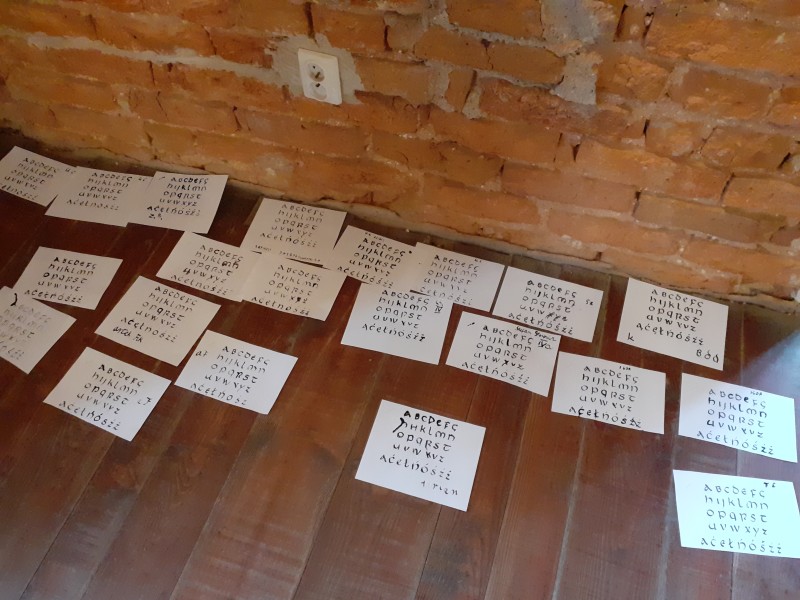 abcdefg
hijklmn
opqrst
uvwxyz
abcdefg
hijklmn
opqrst
uvwxyz
ąćęłńóśźż
abcdefg
hijklmn
opqrst
uvwxyz
ąćęłńóśźż
abcdefg
hijklmn
opqrst
uvwxyz
ąćęłńóśźż
abcdefg
hijklmn
opqrst
uvwxyz
ąćęłńóśźż
abcdefg
hijklmn
opqrst
uvwxyz
ąćęłńóśźż
abcdefg
hijklmn
opqrst
uvwxyz
ąćęłńóśźż
abcdefg
hijklmn
opqrst
uvwxyz
ąćęłńóśźż
abcdefg
hijklmn
opqrst
uvwxyz
ąćęłńóśźż
k
abcdefg
hijklmn
opqrst
uvwxyz
ąćęłńóśźż
abcdefg
hijklmn
opqrst
uvwxyz
ąćęłńóśźż
abcdefg
hijklmn
opqrst
uvwxyz
ąćęłńóśźż
abcdefg
hijklmn
opqrst
uvwxyz
ąćęłńóśźż
abcdefg
hijklmn
opqrst
uvwxyz
ąćęłńóśźż
abcdefg
hijklmn
opqrst
uvwxyz
ąćęłńóśźż
abcdefg
hijklmn
opqrst
uvwxyz
ąćęłńóśźż
abcdefg
hijklmn
opqrst
uvwxyz
ąćęłńóśźż
abcdefg
hijklmn
opqrst
uvwxyz
ąćęłńóśźż
abcdefg
hijklmn
opqrst
uvwxyz
ąćęłńóśźż
abcdefg
hijklmn
opqrst
uvwxyz
ąćęłńóśźż